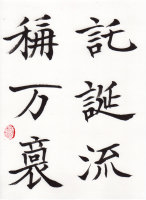 託誕流
稱万